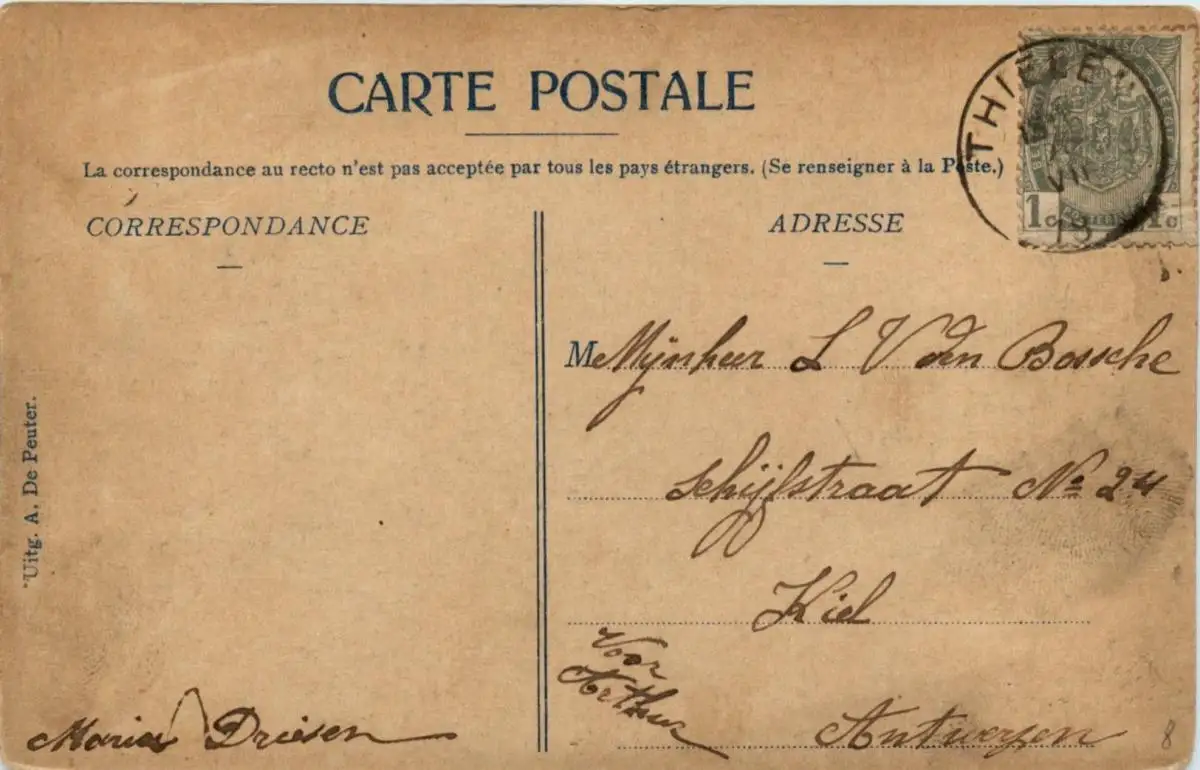 CARTE POSTALE
La correspondance au recto n'est pas acceptée par tous les pays étrangers. (Se renseigner à la Poste.)
CORRESPONDANCE
ADRESSE
THIELEN
VII
19
1c 1c
M Mijnheer L V den Bossche
Schijfstraat No 24
Kiel
Antwerpen
Voor
Arthur
Maria Driesen
Uitg. A. De Peuter.
8